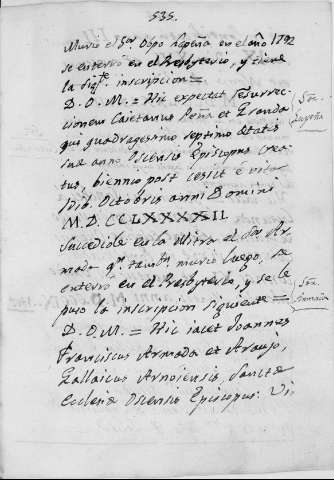 535.
Murió el Sor. Obpo Lapeña en el año 1792
se enterró en el Presbyterio, y tiene
la sigte. inscripcion =
D. O. M. = Hic expectat resurrec-
cionem Caietanus Pena et Granda
qui quadragesimo septimo Ætatis
suæ anno Oscensis Episcopus crea-
tus, biennio post cessit e vita
Sor.
Lapeña
Octobris anni Domini
M. D. CCLXXXXII.
Succediole en la Mitra el Sor. Ar-
mada qn. tambn. murió luego, se
enterró en el Presbyterio, y se le
puso la inscripcion siguiente =
Sor.
Armada
D. O. M. = Hic iacet Joannes
Franciscus Armada et Araujo,
Gallaicus Arnoiensis, Sanctæ
Ecclesiæ Oscensis Episcopus. Vi-